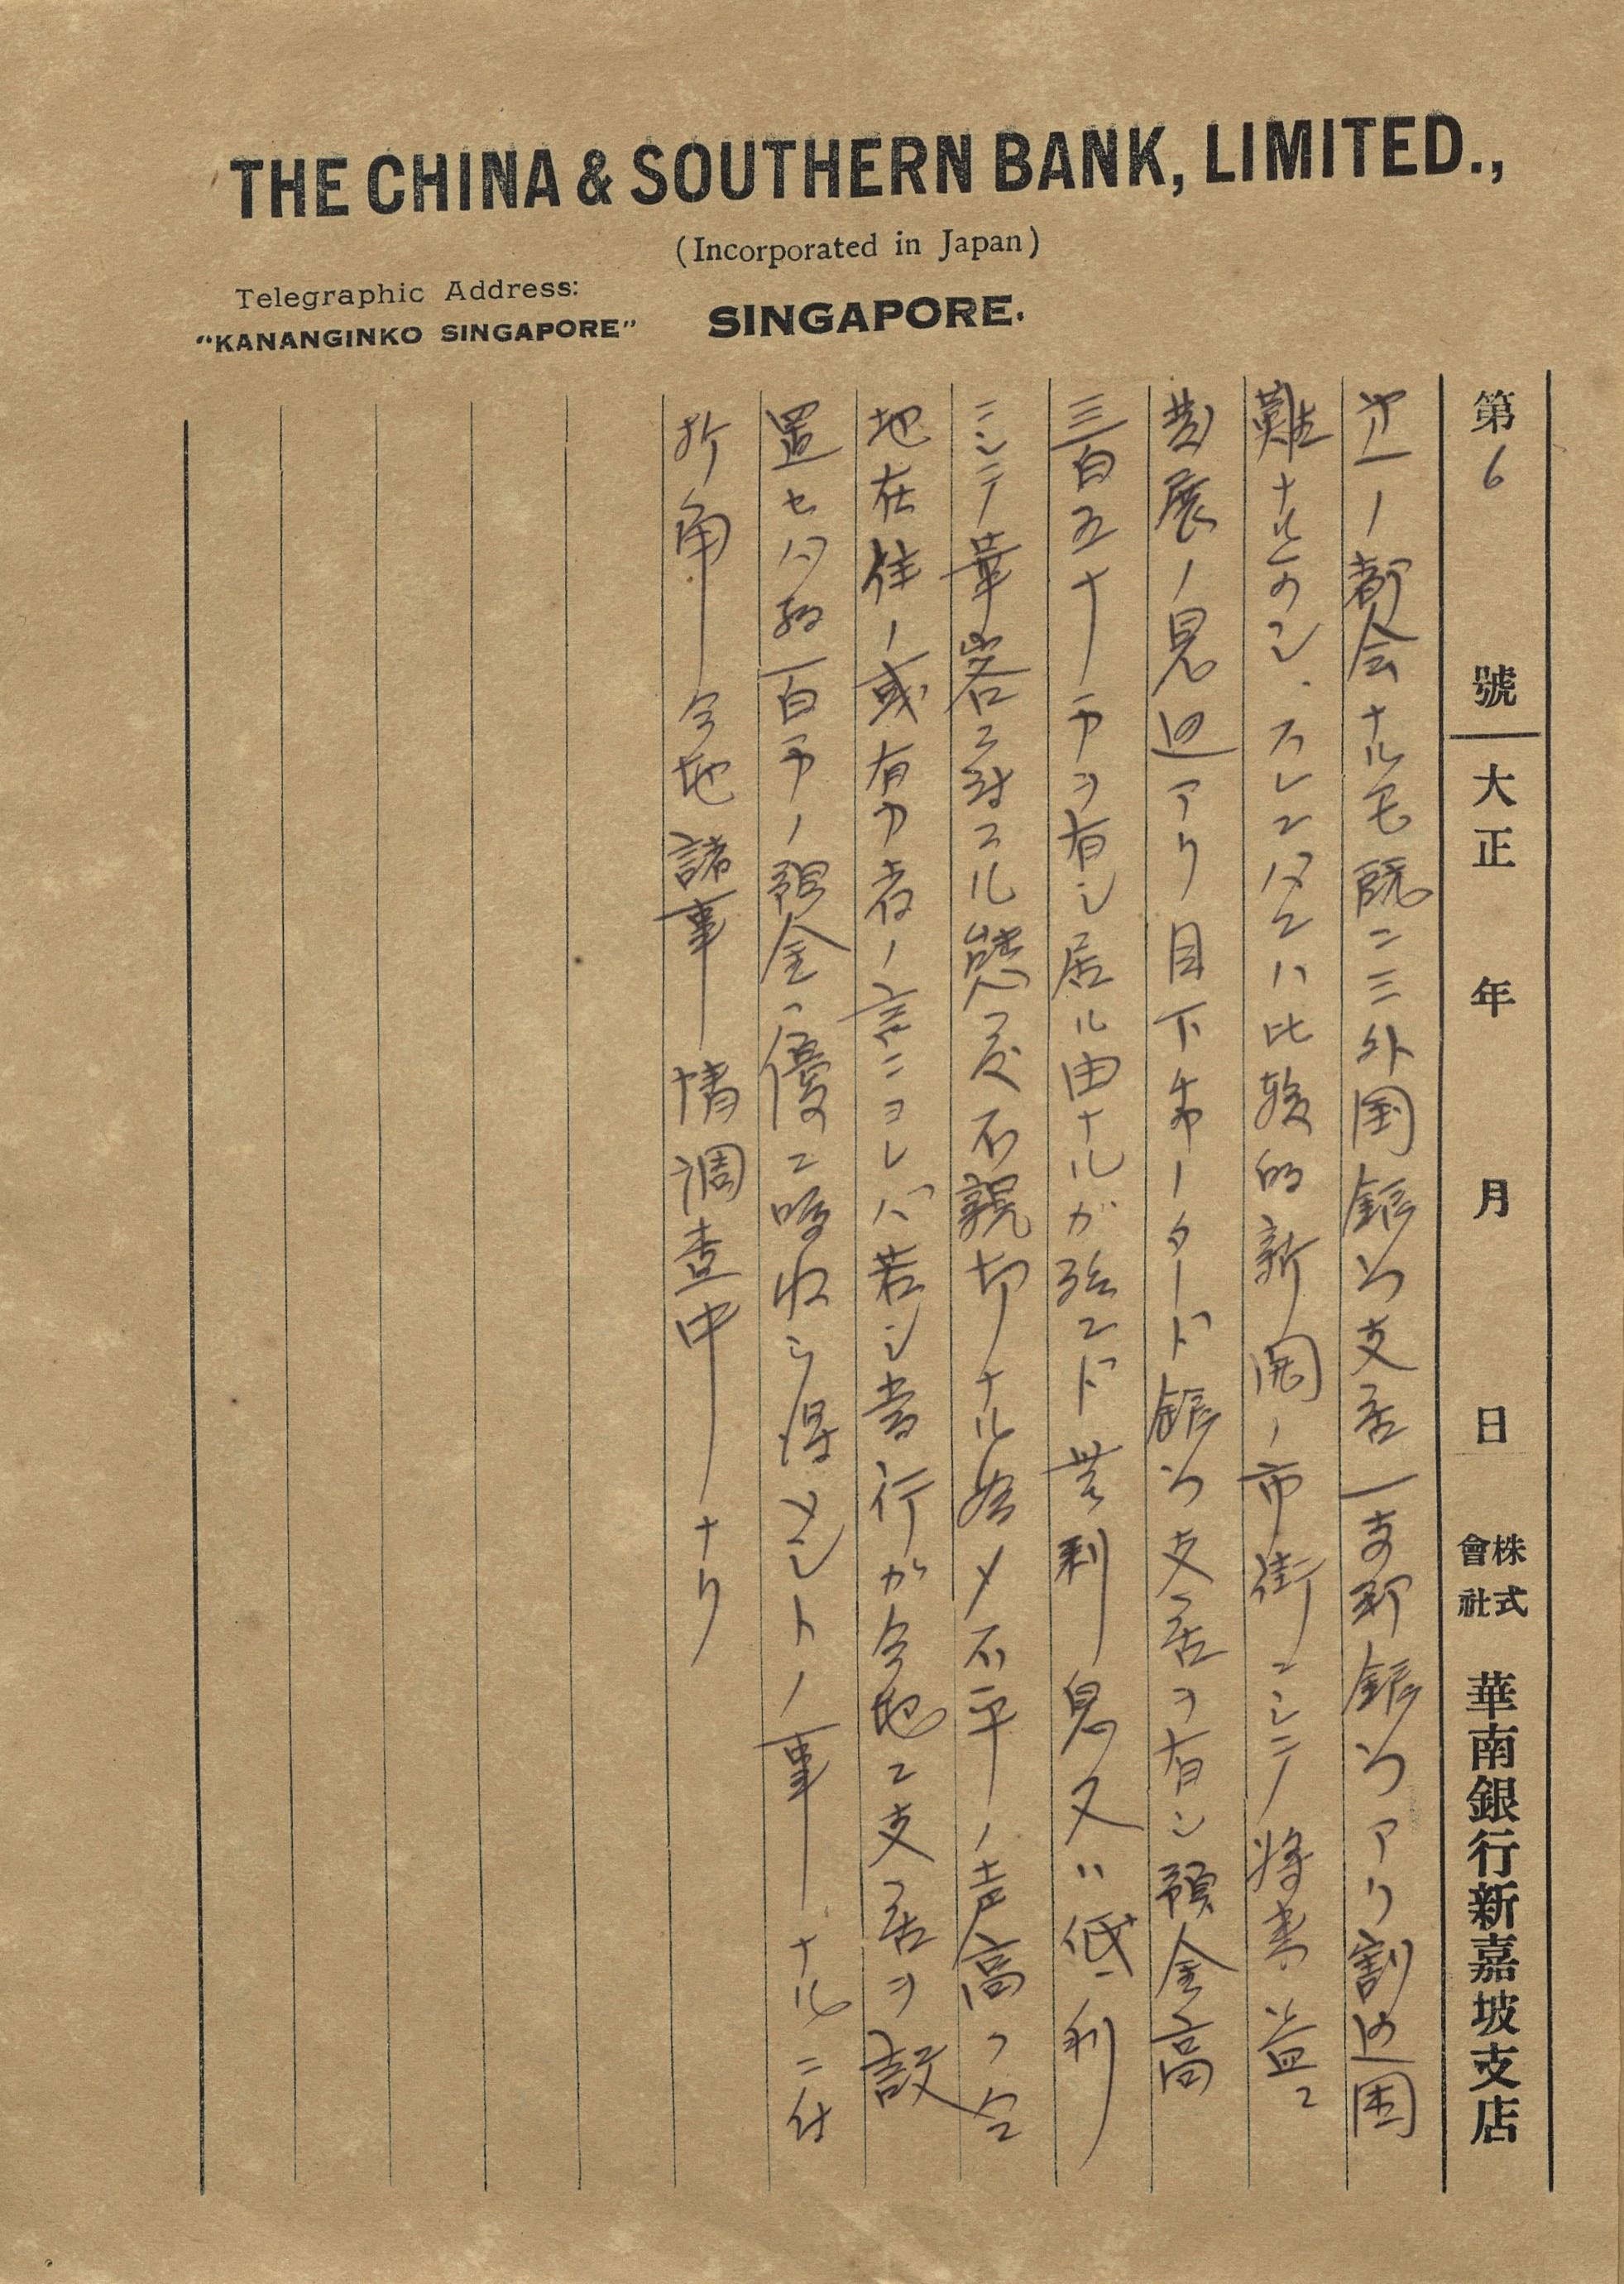 THE CHINA & SOUTHERN BANK, LIMITED.,
(Incorporated in Japan)
Telegraphic Address:
"KANANGINKO SINGAPORE"
SINGAPORE.
第6號 大正 年 月 日 株式會社 華南銀行新嘉坡支店
一ノ都会ナルモ既ニ三外国銀行支店一支那銀行アリ割込困
難ナル 比較的新開ノ市街ニシテ将来益々
発展ノ見込アリ目下チータード銀行支店ヲ有シ預金高
三百五十万ヲ有シ居ル由ナルガ殆ンド無利息又ハ低利
ニシテ華客ニ対スル態度不親切ナル為メ不平ノ声高ク今
地在住ノ或有力者ノ言ニヨレバ若シ当行ガ今地ニ支店ヲ設
置セバ約一百万ノ預金ハ優ニ吸収シ得ベシトノ事ナルニ付
折角今地諸事情調査中ナリ